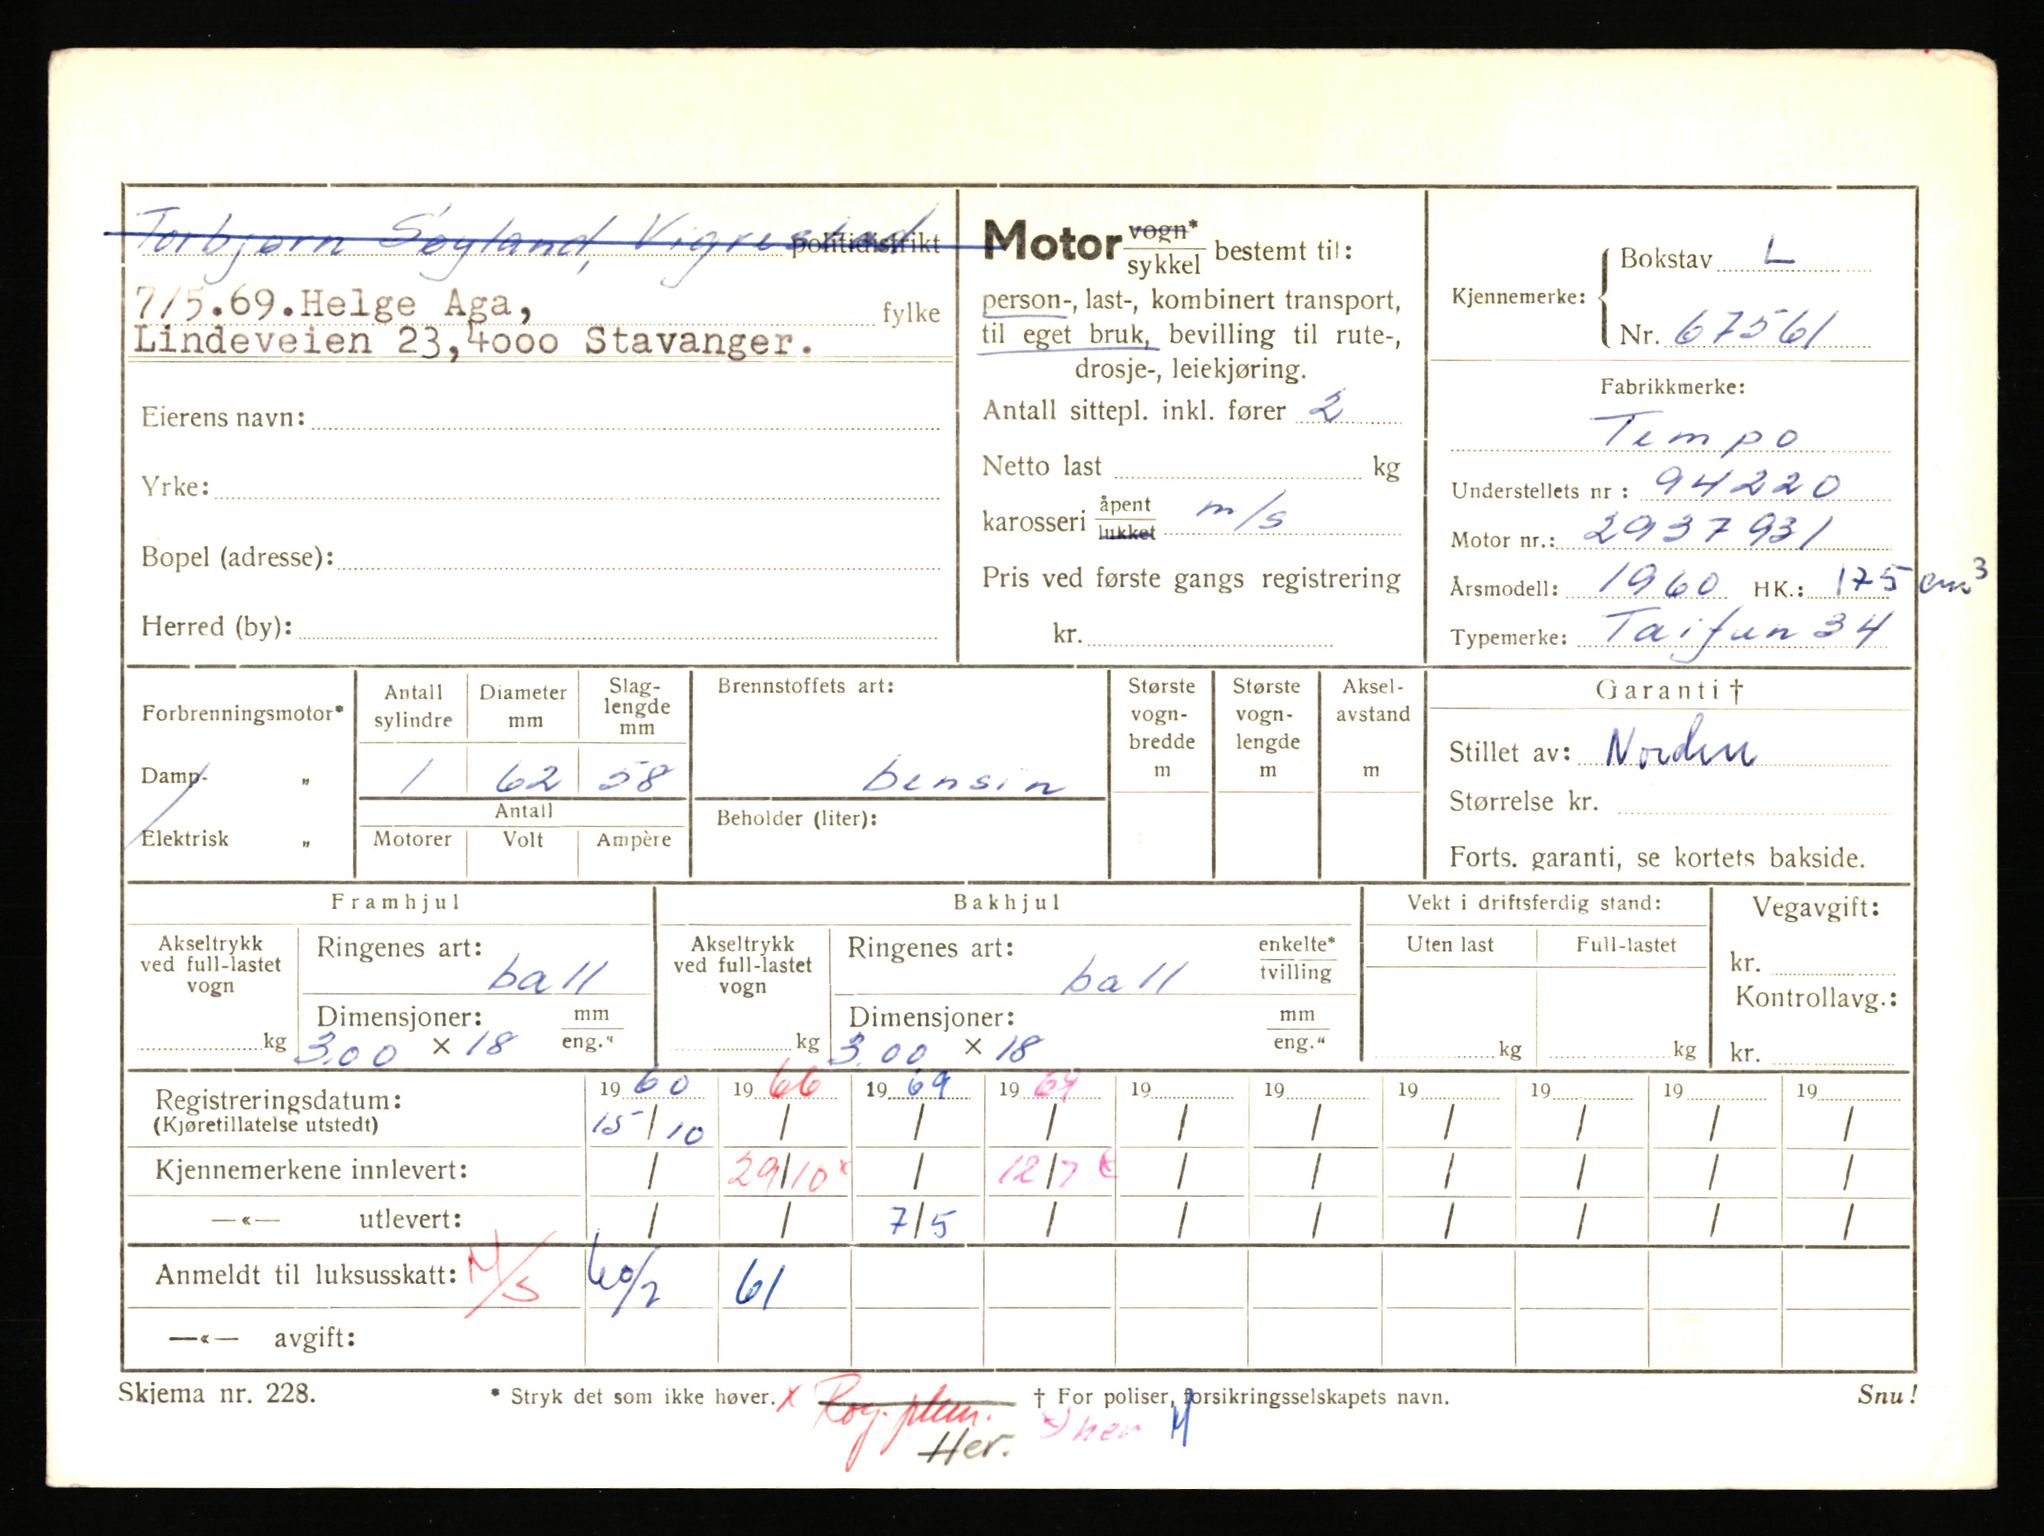 Torbjørn Søyland, Vigrestad politidistrikt
7/5.69.Helge Aga, fylke
Lindeveien 23,4000 Stavanger.
Eierens navn:
Yrke:
Bopel (adresse):
Herred (by):
Motor vogn* / sykkel bestemt til:
person-, last-, kombinert transport,
til eget bruk, bevilling til rute-,
drosje-, leiekjøring.
Antall sittepl. inkl. fører 2
Netto last kg
karosseri åpent / lukket m/s
Pris ved første gangs registrering
kr.
Kjennemerke: Bokstav L
Nr. 67561
Fabrikkmerke:
Tempo
Understellets nr : 94220
Motor nr.: 2937931
Årsmodell: 1960 HK.: 175 cm³
Typemerke: Taifun 34
Forbrenningsmotor*
Damp- „
Elektrisk „
Antall sylindre
Diameter mm
Slag-lengde mm
1 62 58
Antall
Motorer Volt Ampère
Brennstoffets art:
bensin
Beholder (liter):
Største vogn-bredde m
Største vogn-lengde m
Aksel-avstand m
Garanti †
Stillet av: Norden
Størrelse kr.
Forts. garanti, se kortets bakside.
Framhjul
Akseltrykk ved full-lastet vogn
kg
Ringenes art:
ball
Dimensjoner: mm / eng."
3.00 × 18
Bakhjul
Akseltrykk ved full-lastet vogn
kg
Ringenes art: enkelte* / tvilling
ball
Dimensjoner: mm / eng."
3.00 × 18
Vekt i driftsferdig stand:
Uten last Full-lastet
kg kg
Vegavgift:
kr.
Kontrollavg.:
kr.
19 60 19 66 19 69 19 69 19 19 19 19 19 19
Registreringsdatum:
(Kjøretillatelse utstedt) 15/10 / / / / / / / / /
Kjennemerkene innlevert: / 29/10 x / 12/7 / / / / / /
—«— utlevert: / / 7/5 / / / / / / /
Anmeldt til luksusskatt: M/S 60/2 61
—«— avgift:
Skjema nr. 228.
* Stryk det som ikke høver.
x Rog. plem.
† For poliser, forsikringsselskapets navn.
Snu!
Her. her M